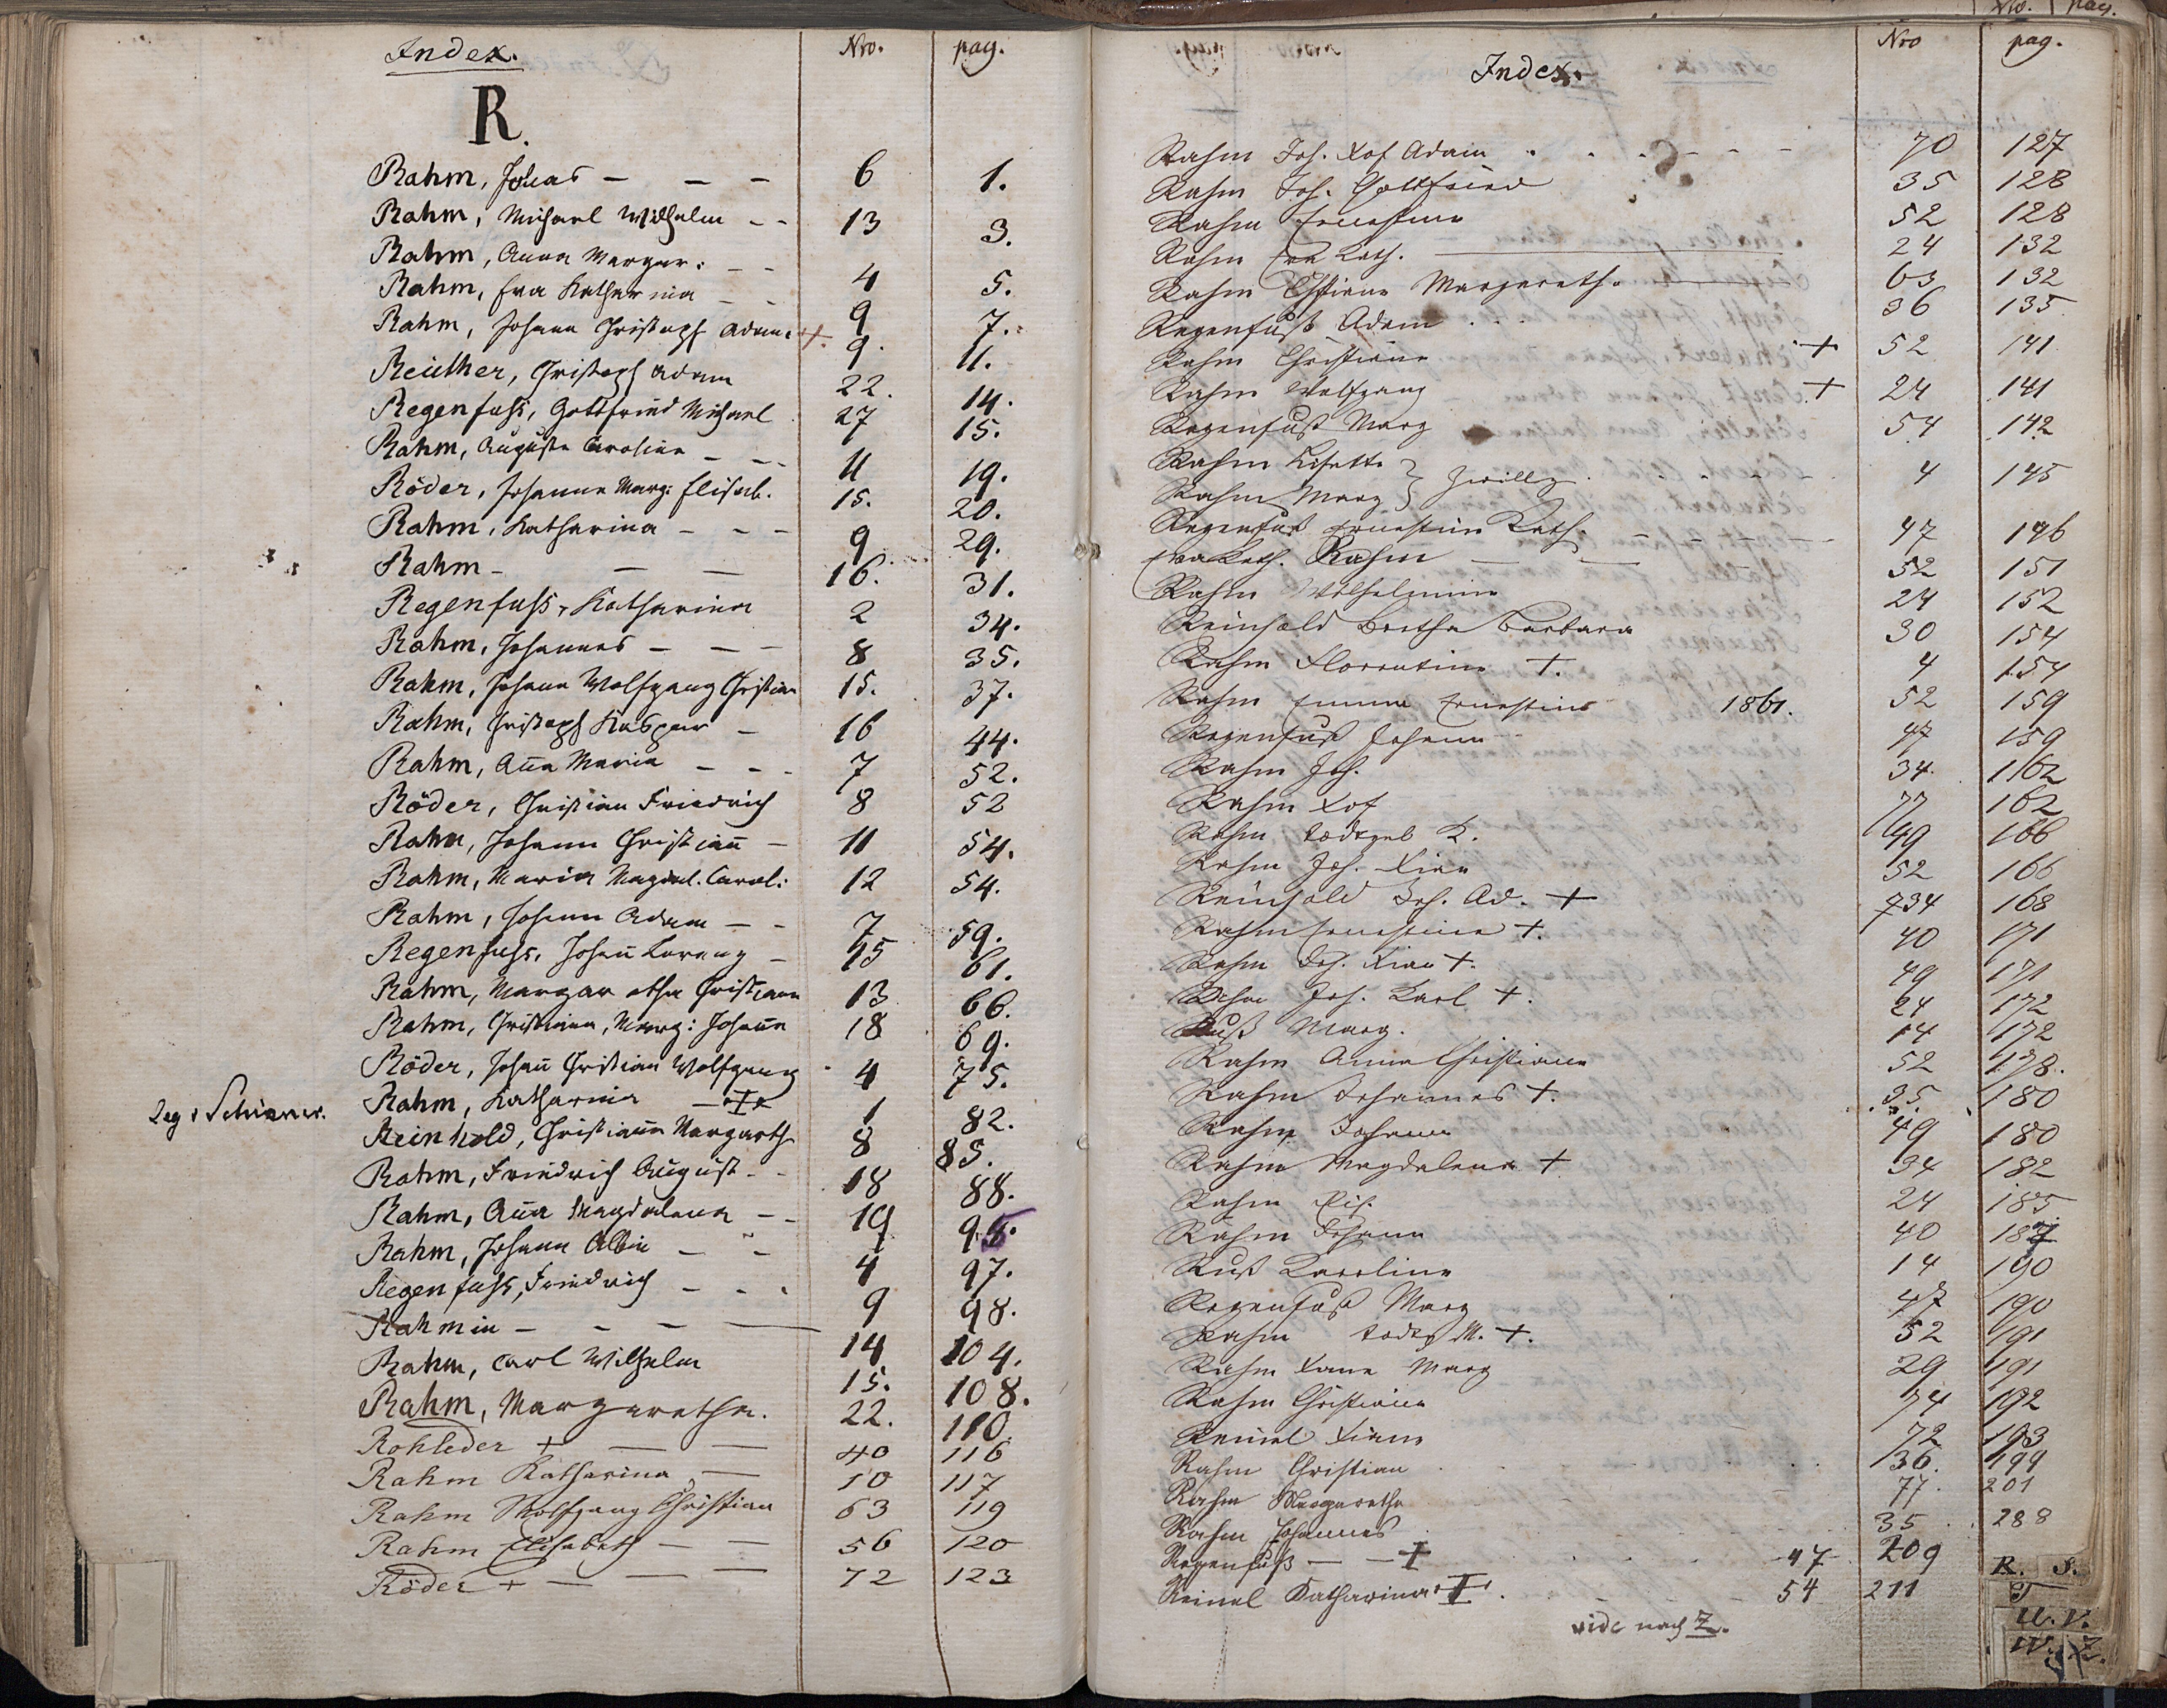 Index. Nro. pag.
R.
Rahm, Jonas - - - 6 1.
Rahm, Michael Wilhelm - - 13 3.
Rahm, Anna Margar: - - 4 5.
Rahm, Eva Katharina - - 9 7.
Rahm, Johann Christoph Adam +. 9. 11.
Reuther, Christoph Adam 22. 14.
Regenfuss, Gottfried Michael 27 15.
Rahm, Auguste Caroline - - - 11 19.
Röder, Johanna Marg: Elisab. 15. 20.
Rahm, Katharina - - - 9 29.
Rahm - - - 16. 31.
Regenfuss, Katharina 2 34.
Rahm, Johannes - - - 8 35.
Rahm, Johann Wolfgang Christian 15. 37.
Rahm, Christoph Kaspar - 16 44.
Rahm, Aña Maria - - - 7 52.
Röder, Christian Friedrich 8 52
Rahm, Johann Christiañ - 11 54.
Rahm, Maria Magdal. Carol: 12 54.
Rahm, Johann Adam - - 7 59.
Regenfuss, Johañ Lorenz - 15 61.
Rahm, Margaretha Christiana 13 66.
Rahm, Christiana, Marg: Johañа 18 69.
Röder, Johañ Christian Wolfgang 4 75.
Rahm, Katharina - + 1 82.
Leg. Schirmer. Reinhold, Christiana Margareth 8 85.
Rahm, Friedrich August - - 18 88.
Rahm, Aña Magdalena - - 19 95.
Rahm, Johann Albin - - - 4 97.
Regenfuss, Friedrich - - - 9 98.
Rahmin - - - - 14 104.
Rahm, Carl Wilhelm 15. 108.
Rahm, Margaretha. 22. 110.
Rohleder + - - 40 116
Rahm Katharina - 10 117
Rahm Wolfgang Christian 63 119
Rahm Elisabeth - - 56 120
Röder + - - - 72 123
Index. Nro pag.
Rahm Joh. Xof Adam - - - 70 127
Rahm Joh. Gottfried 35 128
Rahm Ernestine 52 128
Rahm Eva Kath. - 24 132
Rahm Christiana Margareth. - 63 132
Regenfuß Adam . . . 36 135
Rahm Christiana + 52 141
Rahm Wolfgang + 24 141
Regenfuß Marg 54 142
Rahm Lisette } Zwillg. 4 145
Rahm Marg }
Regenfuß Ernestine Kath. - - - 47 146
Eva Kath. Rahm - - 52 151
Rahm Wilhelmine 24 152
Reinhold Bertha Barbara 30 154
Rahm Florentine +. 4 154
Rahm Emma Ernestine 1861. 52 159
Regenfuß Johann 47 159
Rahm Joh. 34. 162
Rahm Xof 77 162
Rahm todtgeb K. 49 166
Rahm Joh. Xian 52 166
Reinhold Joh. Ad. + 734 168
Rahm Ernestine +. 40 171
Rahm Joh. Xian +. 49 171
Rahm Joh. Karl +. 24 172
Ruß Marg. 14 172
Rahm Anna Christiana 52 178.
Rahm Johannes +. 35. 180
Rahm Johann 49 180
Rahm Magdalena + 34 182
Rahm Elis. 24 185
Rahm Johann 40 187
Ruß Karoline 14 190
Regenfuß Marg 47 190
Rahm todtg M. +. 52 191
Rahm Marg 29 191
Rahm Christiana 74 192
Reinel Xiana 72 193
Rahm Christian 36. 199
Rahm Margaretha 77. 201
Rahm Johannes 35 288
Regenfuß - - + 47 209
Reinel Katharina + 54 211
vide nach Z.
R. S.
T
U. V.
W. Z.